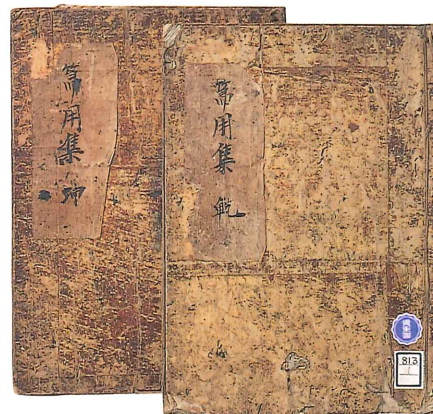 節用集 乾
節用集 坤
813